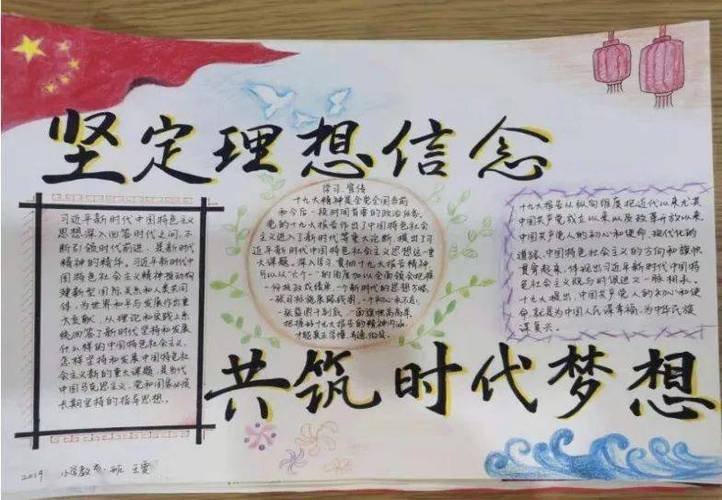 坚定理想信念
习近平新时代中国特色主义
思想深入回答时代之问,不
断引领时代前进,是新时代
精神的精华。习近平新时代中
国特色社会主义精神推动构
建新型国际关系和人类共同
体,为世界和平与发展作出重
大贡献,从理论和实践上系
统回答了新时代坚持和发展
什么样的中国特色社会主义、
怎样坚持和发展中国特色社
会主义新的重大课题,是当代
中国马克思主义,党和国家必须
长期坚持的指导思想。
学习、宣传
十九大精神是全党全国当前
和今后一段时间首要的政治任务。
党的十九大报告作出了中国特色社会
主义进入了新时代等重大论断,提出了习
近平新时代中国特色社会主义思想这一重
大课题,深入学习贯彻十九大报告精神
可以从"六个一"的角度加以全面领会把握
一份成绩,一个新时代的思想方略
一张蓝图干到底,一面旗帜高高举
把握好十九大报告的精神内涵
十九大报告从纵向维度把近代以来尤其
中国共产党成立以来以及改革开放以来,
中国共产党人的初心和使命,现代化的
道路、中国特色社会主义的方向和旗帜
贯穿起来,体现出习近平新时代中国特
色社会主义既与时俱进又一脉相承。
十九大提出,中国共产党人的初心和使
命,就是为中国人民谋幸福,为中华民族
谋复兴。
共筑时代梦想
2019 小学教育一班 王雯